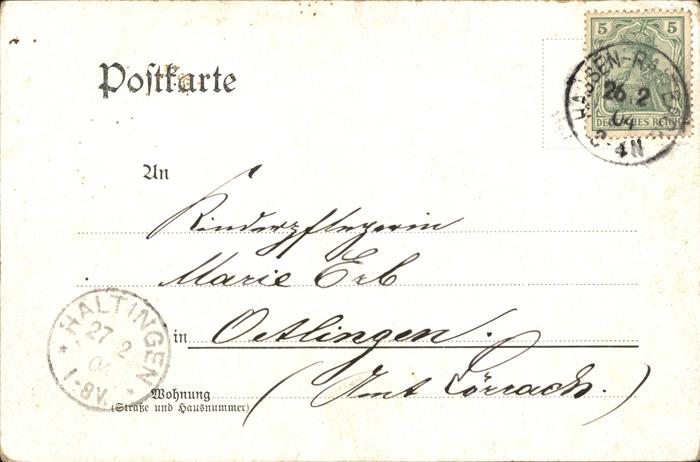 5 5
DEUTSCHES REICH
26 2
04
Postkarte
An
Kinderpflegerin
Marie Erb
in Oetlingen.
(Amt Lörrach.)
Wohnung
(Straße und Hausnummer)
* HALTINGEN *
27 2
1-8V.